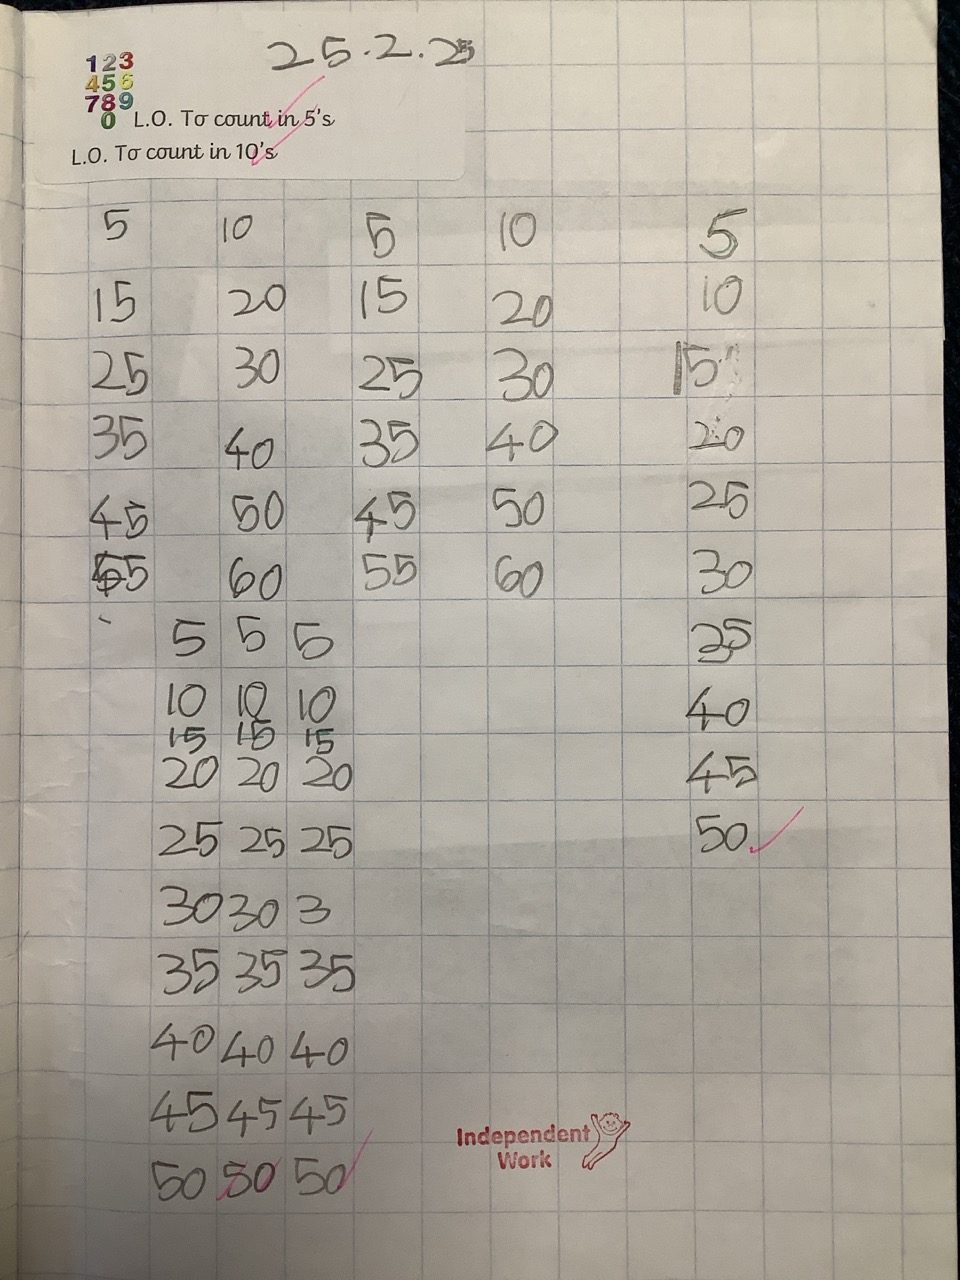 25.2.25
123
456
789
0
L.O. To count in 5's
L.O. To count in 10's
5 10 5 10 5
15 20 15 20 10
25 30 25 30 15
35 40 35 40 20
45 50 45 50 25
55 60 55 60 30
5 5 5 35
10 10 10 40
15 15 15
20 20 20 45
25 25 25 50
30 30 3
35 35 35
40 40 40
45 45 45
50 50 50
Independent
Work